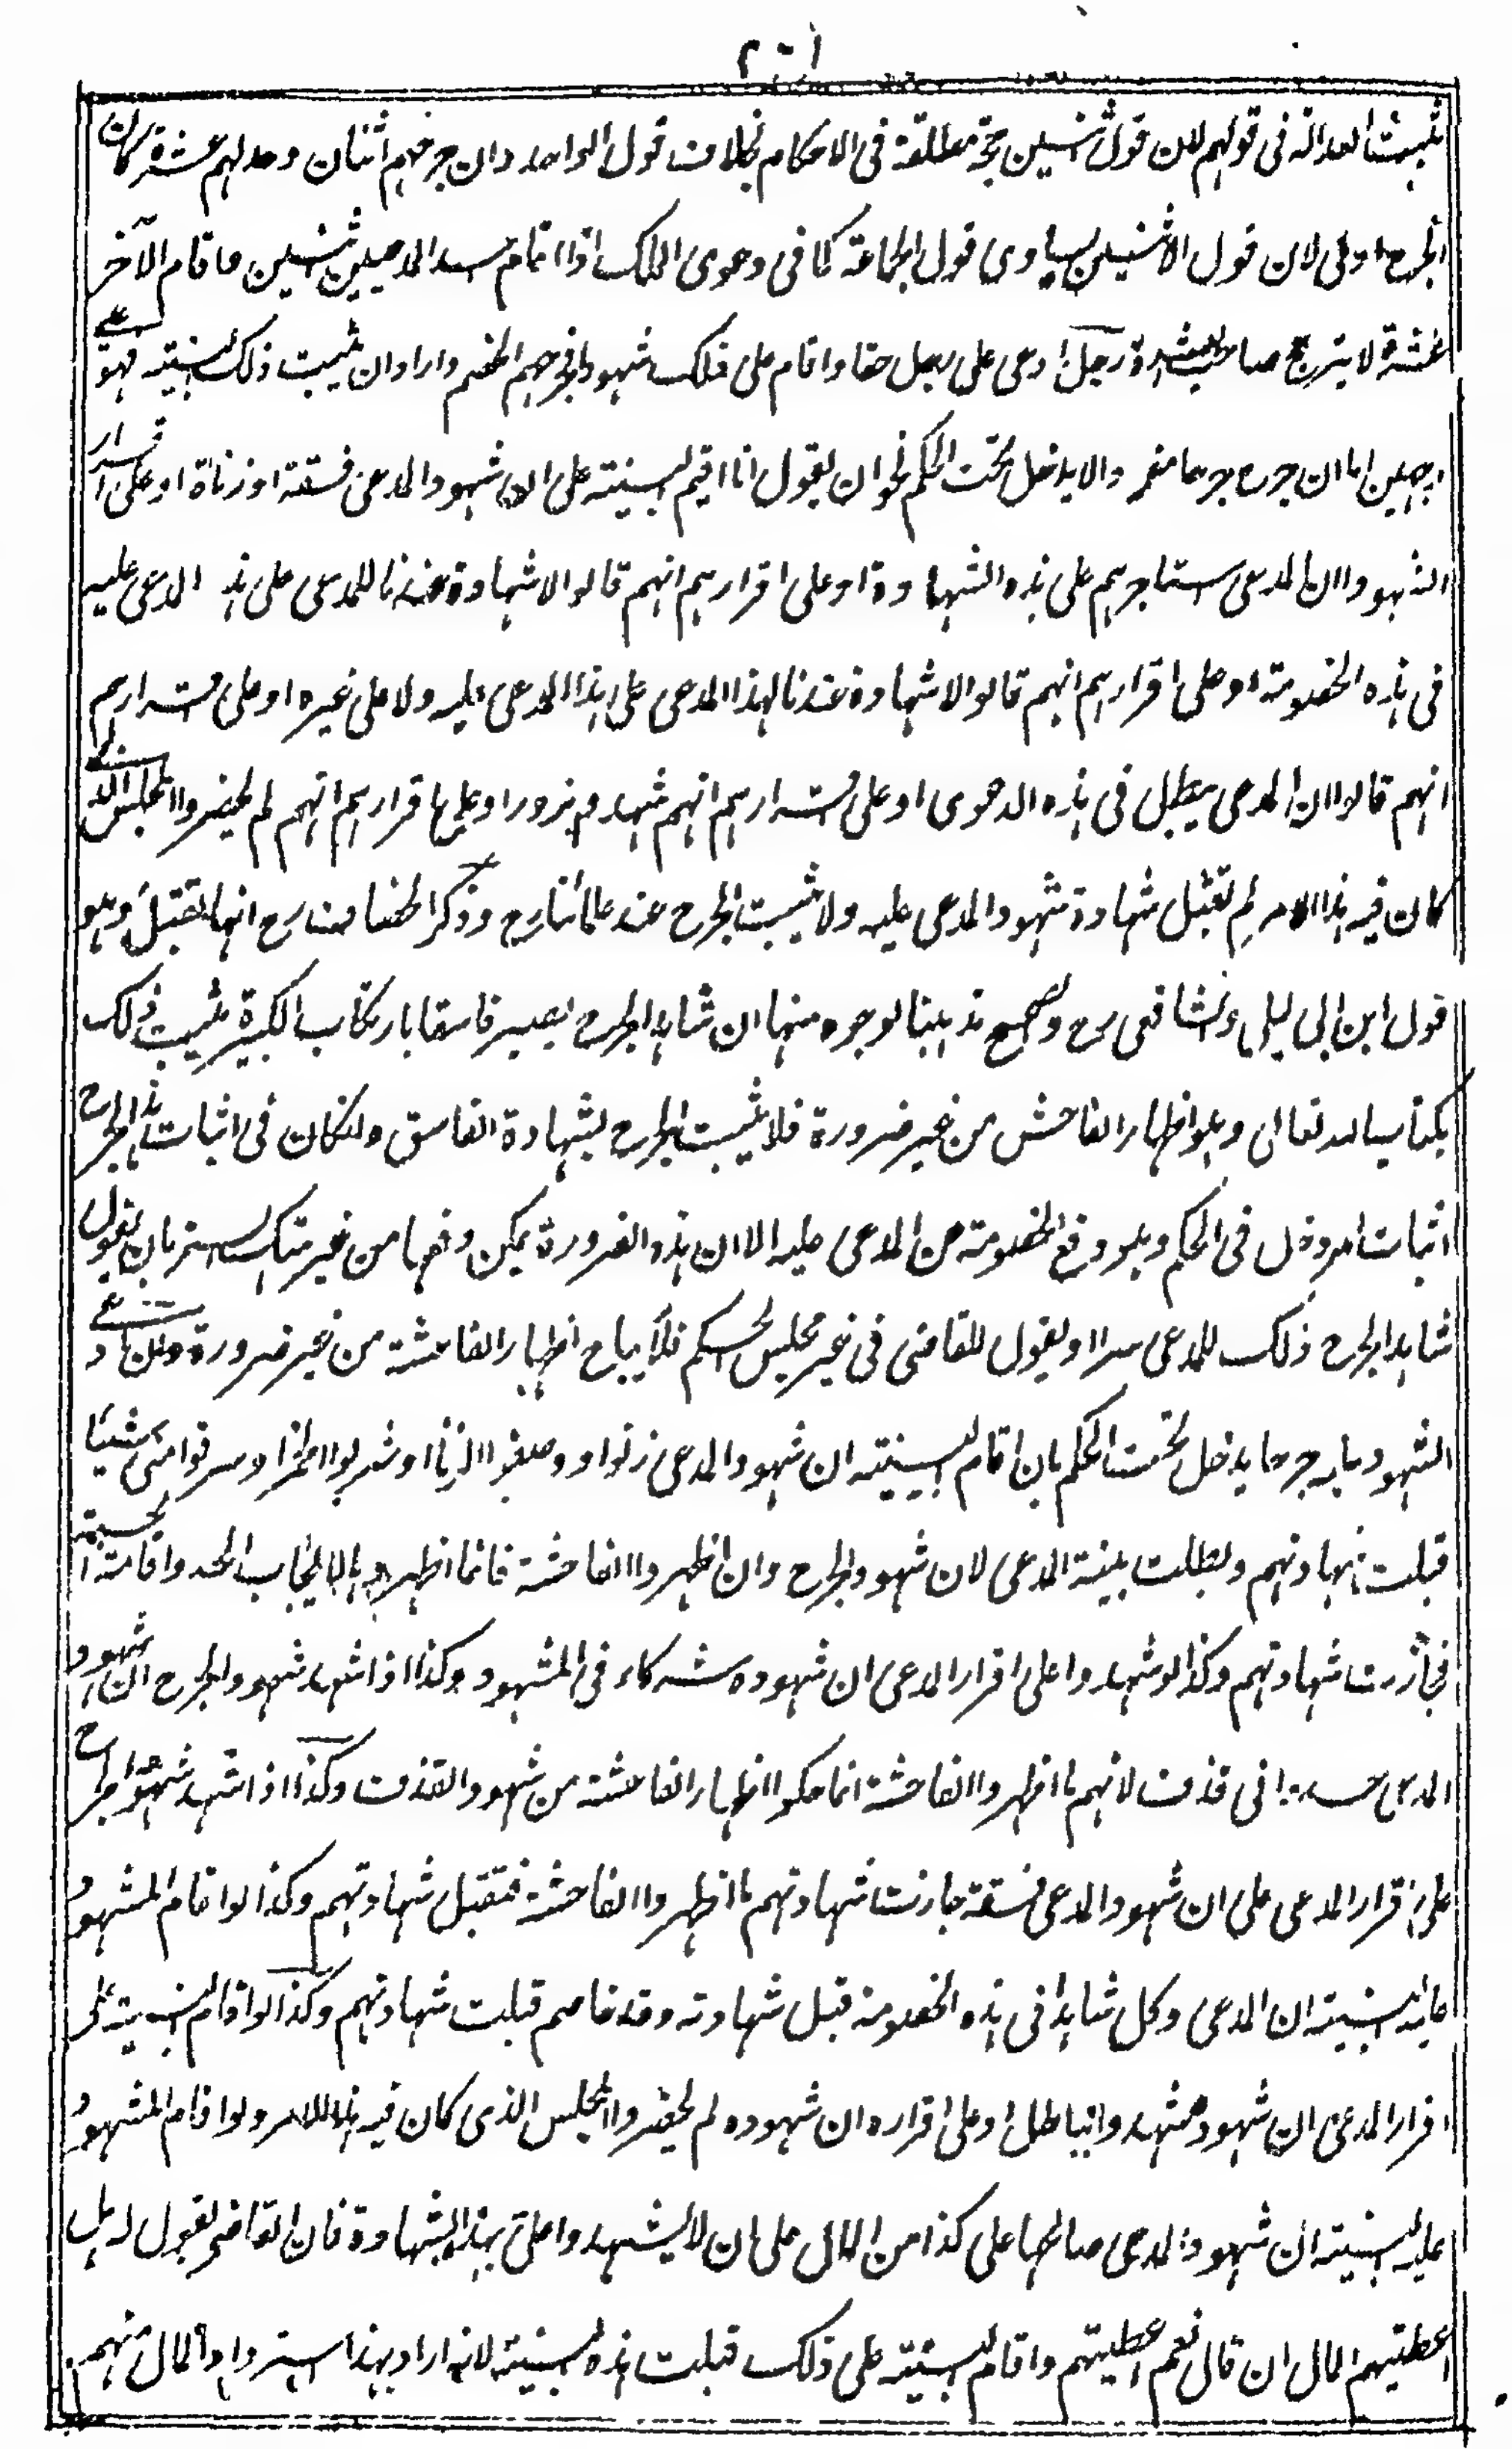 ٢٠١
تثبت العدالة فى قولهم لان قول اثنين حجة مطلقة فى الاحكام بخلاف قول الواحد وان جرحهم اثنان وعدلهم عشرة كان
الجرح اولى لان قول الاثنين يساوى قول الجماعة كما فى دعوى الملك اذا اقام احد المدعيين اثنين واقام الآخر
عشرة لا يترجح صاحب العشرة رجل ادعى على رجل حقا واقام على ذلك شهودا فجرحهم الخصم واراد ان يثبت ذلك بالبينة فهو على
وجهين اما ان جرح جرحا مفردا لا يدخل تحت الحكم نحو ان يقول انا اقيم البينة على ان شهود المدعى فسقة او زناة او على اقرار
الشهود ان المدعى استاجرهم على هذه الشهادة او على اقرارهم انهم قالوا لا شهادة عندنا للمدعى على هذا المدعى عليه
فى هذه الخصومة او على اقرارهم انهم قالوا لا شهادة عندنا لهذا المدعى على هذا المدعى عليه ولا على غيره او على اقرارهم
انهم قالوا ان المدعى مبطل فى هذه الدعوى او على اقرارهم انهم شهدوا بزور او على اقرارهم انهم لم يحضروا المجلس الذى
كان فيه هذا الامر لم تقبل شهادة شهود المدعى عليه ولا يثبت الجرح عند علمائنا رح وذكر الخصاف رح انها تقبل وهو
قول ابن ابى ليلى والشافعى رح والصحيح مذهبنا لوجوه منها ان شاهد الجرح يصير فاسقا بارتكاب الكبيرة يثبت ذلك
بكتاب الله تعالى وهو اظهار الفاحش من غير ضرورة فلا يثبت الجرح بشهادة الفاسق ولئن كان فى اثبات هذا الجرح
اثبات امر دخل فى الحكم وهو دفع الخصومة عن المدعى عليه الا ان هذه الضرورة يمكن دفعها من غير هتك الستر بان يقول
شاهد الجرح ذلك للمدعى سرا او يقول للقاضى فى غير مجلس الحكم فلا يباح اظهار الفاحشة من غير ضرورة وان ادعى
الشهود ما به جرحا يدخل تحت الحكم بان اقام البينة ان شهود المدعى زنوا ووصفوا الزنا او شربوا الخمر او سرقوا منى شيئا
قبلت شهادتهم وبطلت بينة المدعى لان شهود الجرح وان اظهروا الفاحشة فانما اظهروها لايجاب الحد واقامة الحسبة
فجازت شهادتهم وكذا لو شهدوا على اقرار المدعى ان شهوده شركاء فى المشهود وكذا اذا شهد شهود الجرح ان شهود
المدعى حدوا فى قذف لانهم ما اظهروا الفاحشة انما حكوا اظهار الفاحشة من شهود القذف وكذا اذا شهد شهود الجرح
على اقرار المدعى على ان شهود المدعى فسقة جازت شهادتهم ما اظهروا الفاحشة فتقبل شهادتهم وكذا لو اقام المشهود
عليه البينة ان المدعى وكل شاهدا فى هذه الخصومة قبل شهادته وقد خاصم قبلت شهادتهم وكذا لو اقام البينة على
اقرار المدعى ان شهوده شهدوا بباطل او على اقراره ان شهوده لم يحضروا المجلس الذى كان فيه هذا الامر ولو اقام المشهود
عليه البينة ان شهود المدعى صالحها على كذا من المال على ان لا يشهدوا على بهذه الشهادة فان القاضى يقول له هل
اعطيتهم المال ان قال نعم اعطيتهم واقام البينة على ذلك قبلت هذه البينة لانه اراد بهذا استرداد المال منهم